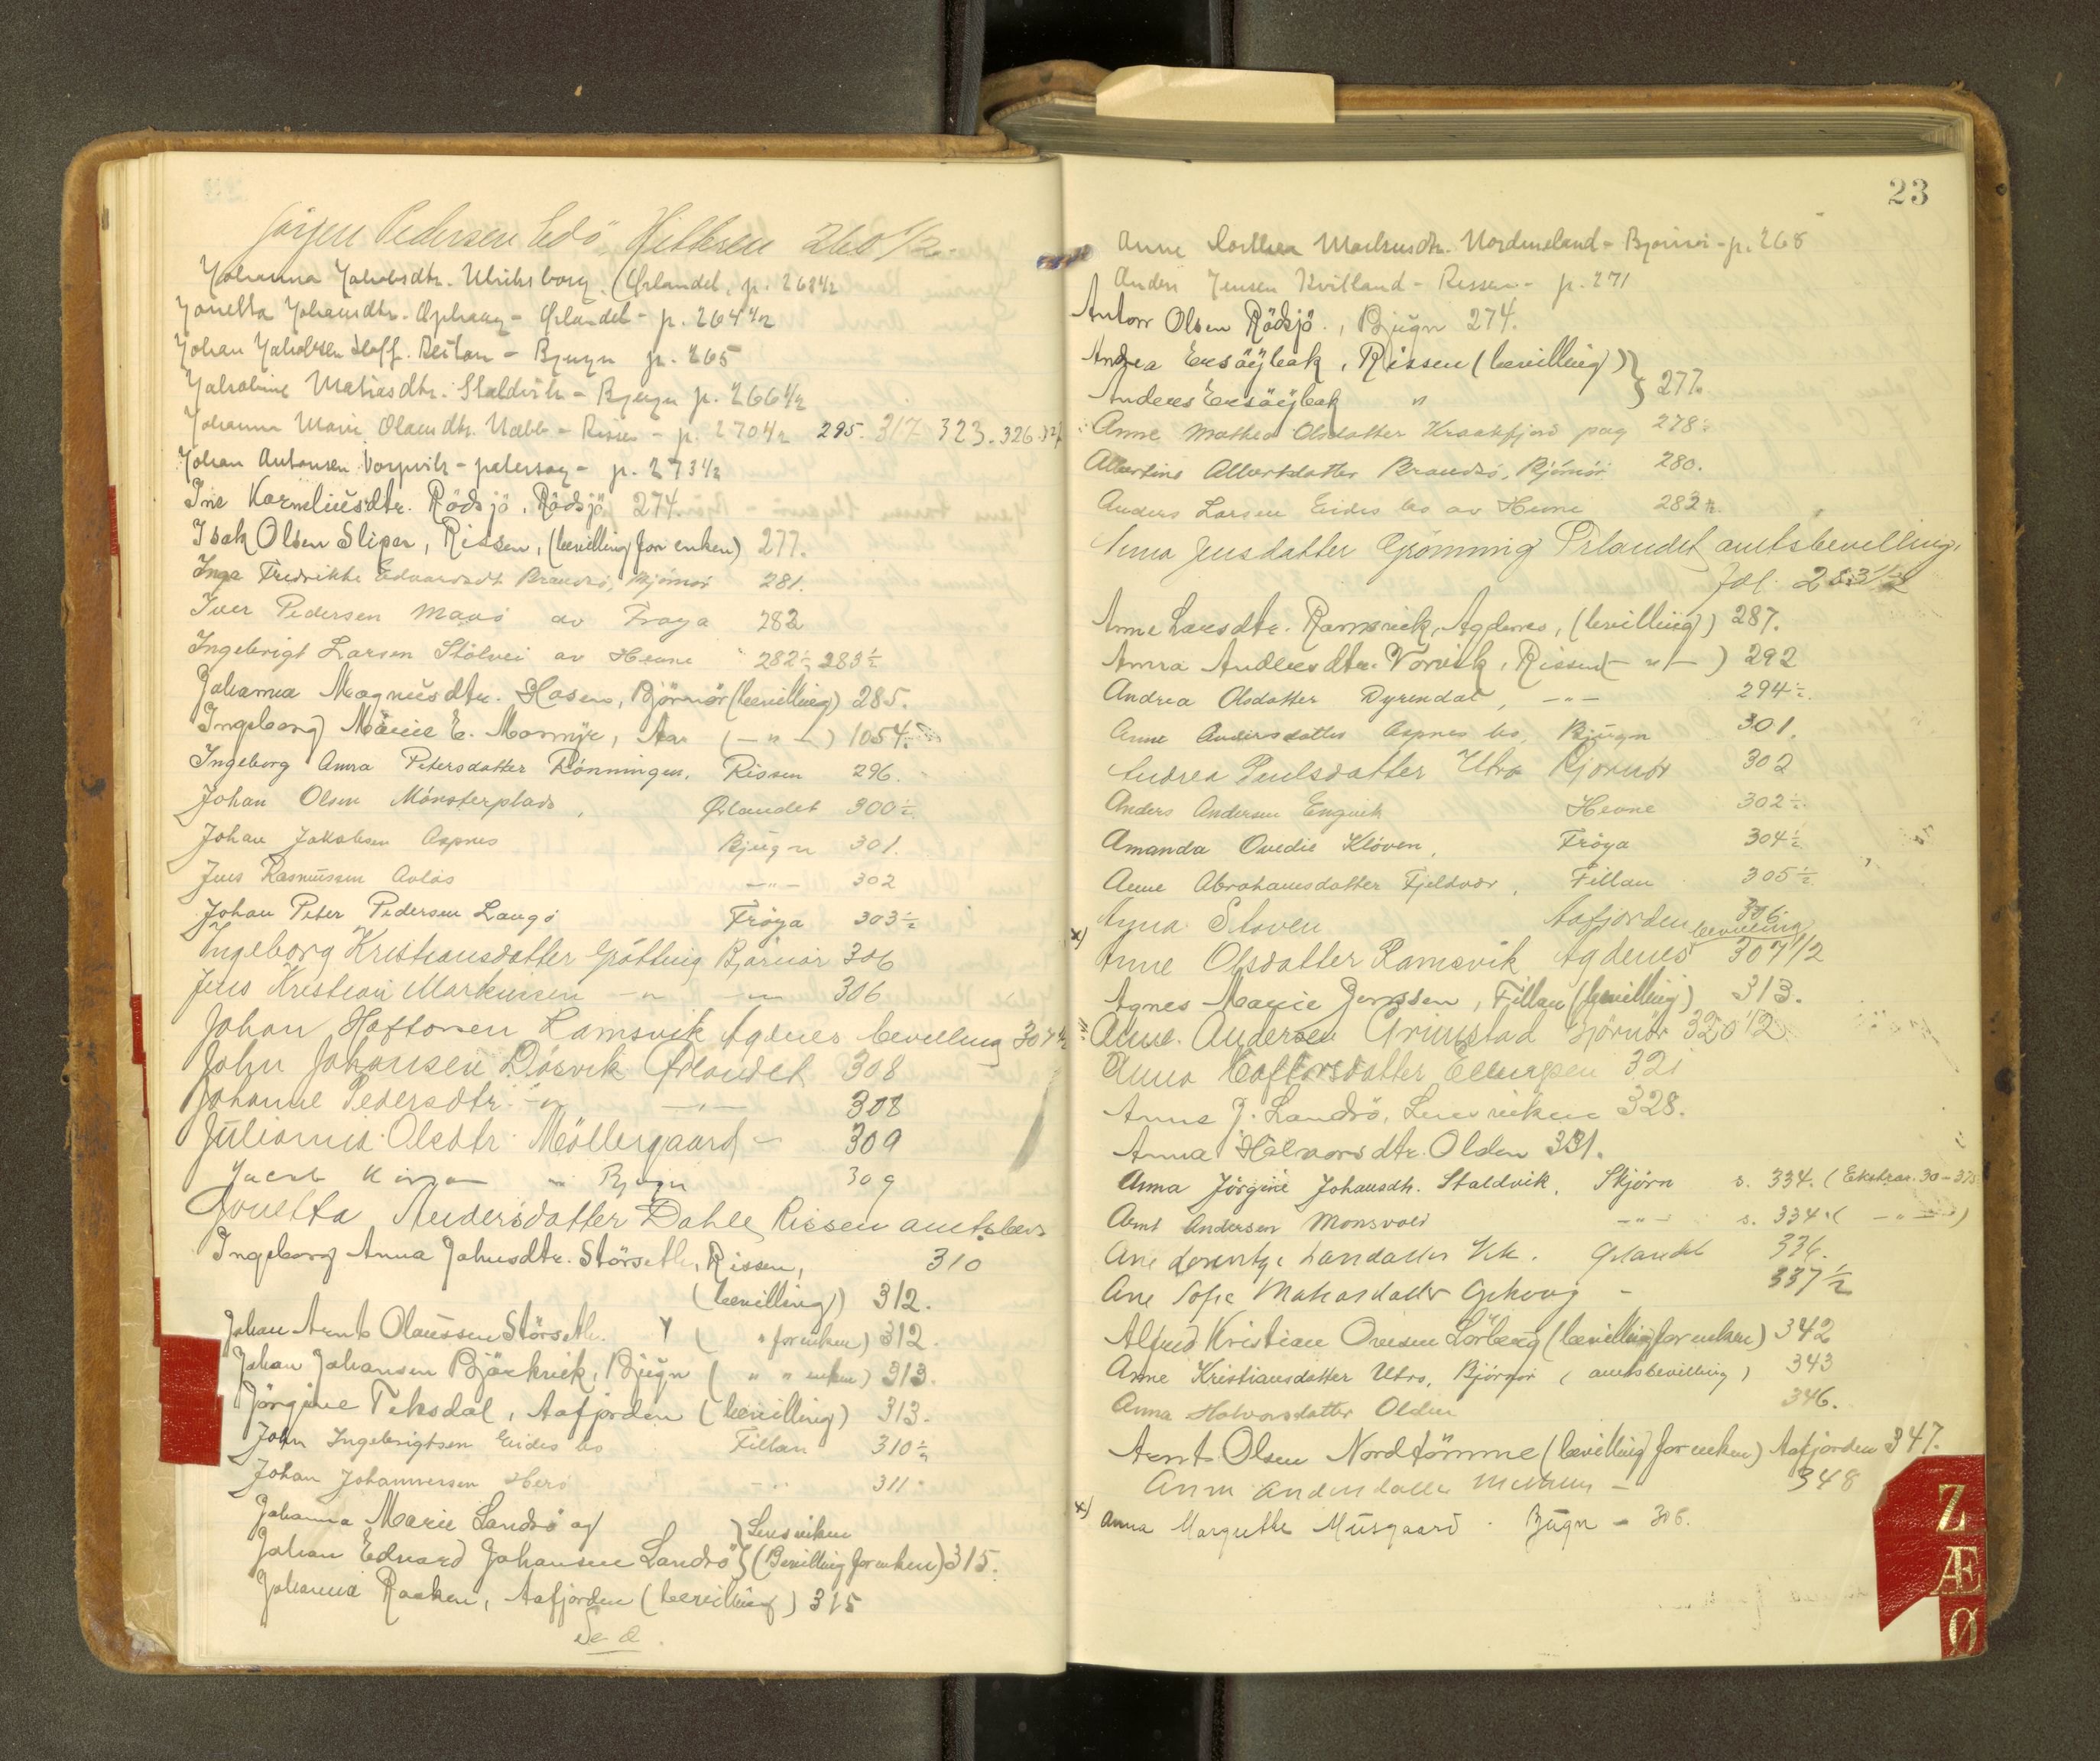 Jörgen Pedersen Edö, Hitteren 260 1/2
Johanna Jakobsdtr. Ulriksborg (Ørlandet, p. 263 1/2
Jonetta Johansdtr. Ophaug - Ørlandet - p. 264 1/2
Johan Jakobsen Hoff. Reitan - Bjugn p. 265
Jakobine Matiasdtr. Staldvik - Bjugn p. 266 1/2
Johanna Marie Olausdtr. Næbb - Rissen - p. 270 1/2 295. 317 323. 326.
Johan Antonsen Vorpvik - p. 273 1/2
Ine Korneliusdtr. Rödsjö, Rödsjö 274.
Isak Olsen Sliper, Rissen, (bevilling for enken) 277.
Inga Fredrikke Edvardsdt Brandsö, Bjørnør 281.
Iver Pedersen Maasö av Frøya 282
Ingebrigt Larsen Stölvei av Hevne 282 1/2, 283 1/2
Johanna Magnusdtr. Hasen, Björnör (bevilling) 285.
Ingeborg Marie E. Momyr, Aa (- " -) 1054.
Ingeborg Anna Petersdatter Rönningen, Rissen 296.
Johan Olsen Mönsterplads, Ørlandet 300 1/2
Johan Jakobsen Aspnes Bjugn 301.
Jens Rasmussen Avlös -"- 302
Johan Peter Pedersen Langö Fröya 303 1/2
Ingeborg Kristiansdatter Gjötting Bjørnør 306
Jens Kristian Markussen -"- -"- 306
Johan Haftorsen Ramsvik Agdenes bevilling 307 1/2
John Johansen Dösvik Ørlandet 308
Johanne Pedersdtr. -"- -"- 308
Julianna Olsdtr. Möllergaard - 309
Jacob - Bjugn 309
Jonetta Andersdatter Dahle Rissen amtsbev
310
Ingeborg Anna Johnsdtr. Störseth, Rissen,
(bevilling) 312.
Johan Arnt Olaussen Störseth. " ( " for enken) 312.
Johan Johansen Björkvik, Bjugn ( " " enken) 313.
Jörgine Teksdal, Aafjorden (bevilling) 313.
John Ingebrigtsen Eides bo Fillan 310 1/2
Johan Johannessen Herö -"- 311
Johanna Marie Landrö og } Lensviken
Johan Edvard Johansen Landrö } (Bevilling for enken) 315.
Johanna Raaken, Aafjorden (bevilling) 315
23
Anne Dorthea Markusdtr. Nordmeland - Bjørnør - p. 268
Anders Jensen Kvitland - Rissen - p. 271
Anton Olsen Rödsjö., Bjugn 274.
Andrea Ersöybak, Rissen (bevilling) }
Anders Ersöybak " } 277.
Anne Mathea Olsdatter Kraakfjord pag 278 1/2
Albertine Albertsdatter Brandsö, Björnör 280.
Anders Larsen Eides bo av Hevne 283 1/2.
Anna Jensdatter Grønning Ørlandet amtsbevilling,
fol. 283 1/2
Anne Larsdtr. Ramsvik, Agdenes, (bevilling) 287.
Anna Andersdtr. Vorvik, Rissen (- " -) 292
Andrea Olsdatter Dyrendal, -"- 294 1/2.
Anne Andersdatter Aspnes bo, Bjugn 301.
Andrea Paulsdatter Utro Bjørnør 302
Anders Andersen Engvik Hevne 302 1/2
Amanda Ovedie Klöven, Fröya 304 1/2
Anne Abrahamsdatter Fjeldvær, Fillan 305 1/2
Anna Stoven Aafjorden 306
x) bevilling
Anne Olsdatter Ramsvik Agdenes 307 1/2
Agnes Marie Jenssen, Fillan (bevilling) 313.
Anne. Andersen Grimstad Bjørnør 320 1/2
Anna Haftorsdatter Ellingsen 321
Anna J. Landrö, Lensviken 328.
Anna Halvorsdtr. Olden 331.
Anna Jörgine Johansdtr. Staldvik, Skjörn s. 334. (Ekstrar. 30-
Arnt Andersen Monsvold -"- s. 334. ( -"- )
Ane Vik. Ørlandet 336.
Ane Sofie Matiasdatter Ophaug - 337 1/2
Alfred Kristian Ovesen Sörberg (bevilling for enken) 342
Anne Kristiansdatter Utro, Björnör (amtsbevilling) 343
Anna Halvorsdatter Olden 346.
Arnt Olsen Nordtömme (bevilling for enken) Aafjorden 347.
Anna Andersdatter - 348
x) Anna Margrethe Musgaard. Bjugn - 306.
Z
Æ
Ø